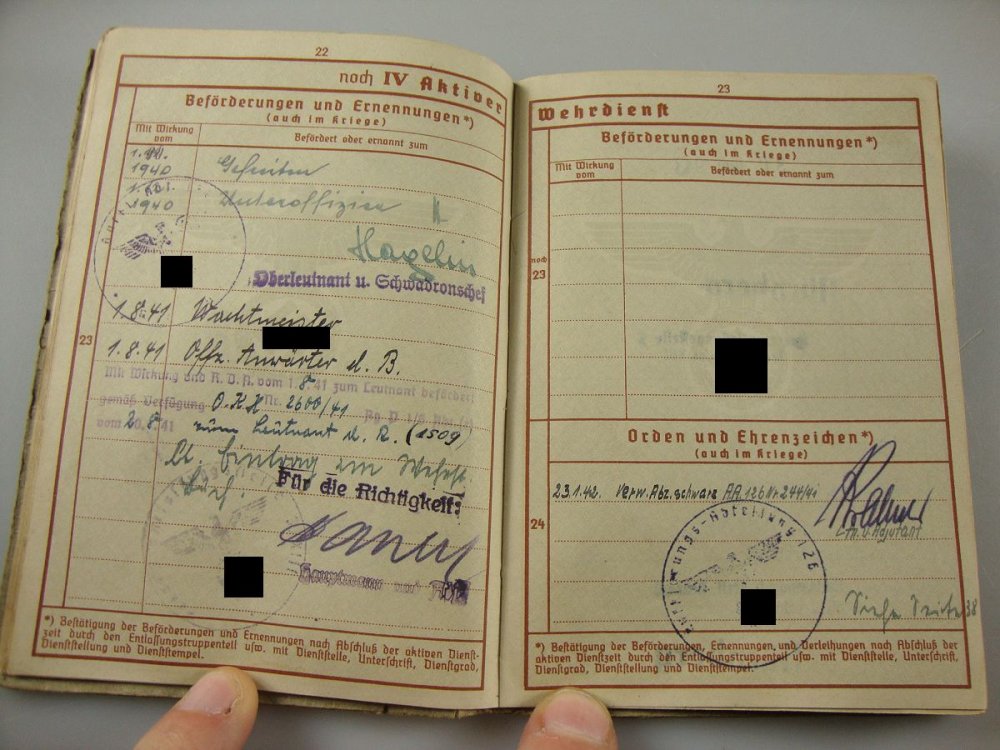 22
noch IV Aktiver
Beförderungen und Ernennungen*)
(auch im Kriege)
Mit Wirkung vom
Befördert oder ernannt zum
1940
Gefreiten
1940
Unteroffizier
Oberleutnant u. Schwadronschef
23
1.8.41 Wachtmeister
1.8.41 Offz. Anwärter d. B.
Mit Wirkung und R.D.A. vom 1.8.41 zum Leutnant befördert
gemäß Verfügung O.K.H Nr. 2600/41
vom 20.8.41
2.8 zum Leutnant d. R. (1509)
Lt. Eintrag im
Für die Richtigkeit:
Hauptmann und
*) Bestätigung der Beförderungen und Ernennungen nach Abschluß der aktiven Dienst-
zeit durch den Entlassungstruppenteil usw. mit Dienststelle, Unterschrift, Dienstgrad,
Dienststellung und Dienststempel.
23
Wehrdienst
Beförderungen und Ernennungen*)
(auch im Kriege)
Mit Wirkung vom
Befördert oder ernannt zum
noch
23
Orden und Ehrenzeichen*)
(auch im Kriege)
23.1.42. Verw. Abz. schwarz AA 126 Nr 244/41
24
Ltn. u. Adjutant
Abteilung 126
Siehe Seite 38
*) Bestätigung der Beförderungen, Ernennungen und Verleihungen nach Abschluß der
aktiven Dienstzeit durch den Entlassungstruppenteil usw. mit Dienststelle, Unterschrift,
Dienstgrad, Dienststellung und Dienststempel.